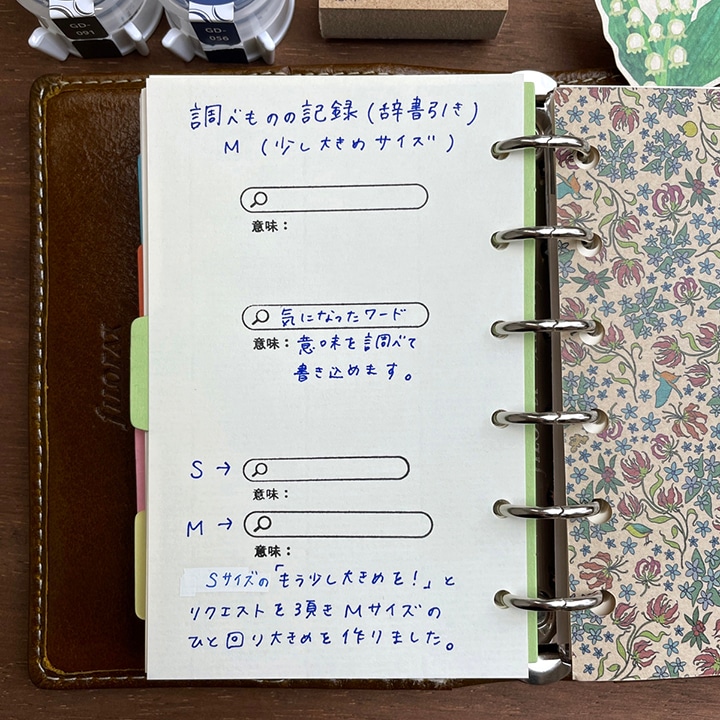 GD-
091
GD-
056
調べものの記録(辞書引き)
M (少し大きめサイズ)
意味:
気になったワード
意味: 意味を調べて
書き込めます。
S →
意味:
M →
意味:
Sサイズの「もう少し大きめを!」と
リクエストを頂き Mサイズの
ひと回り大きめを作りました。